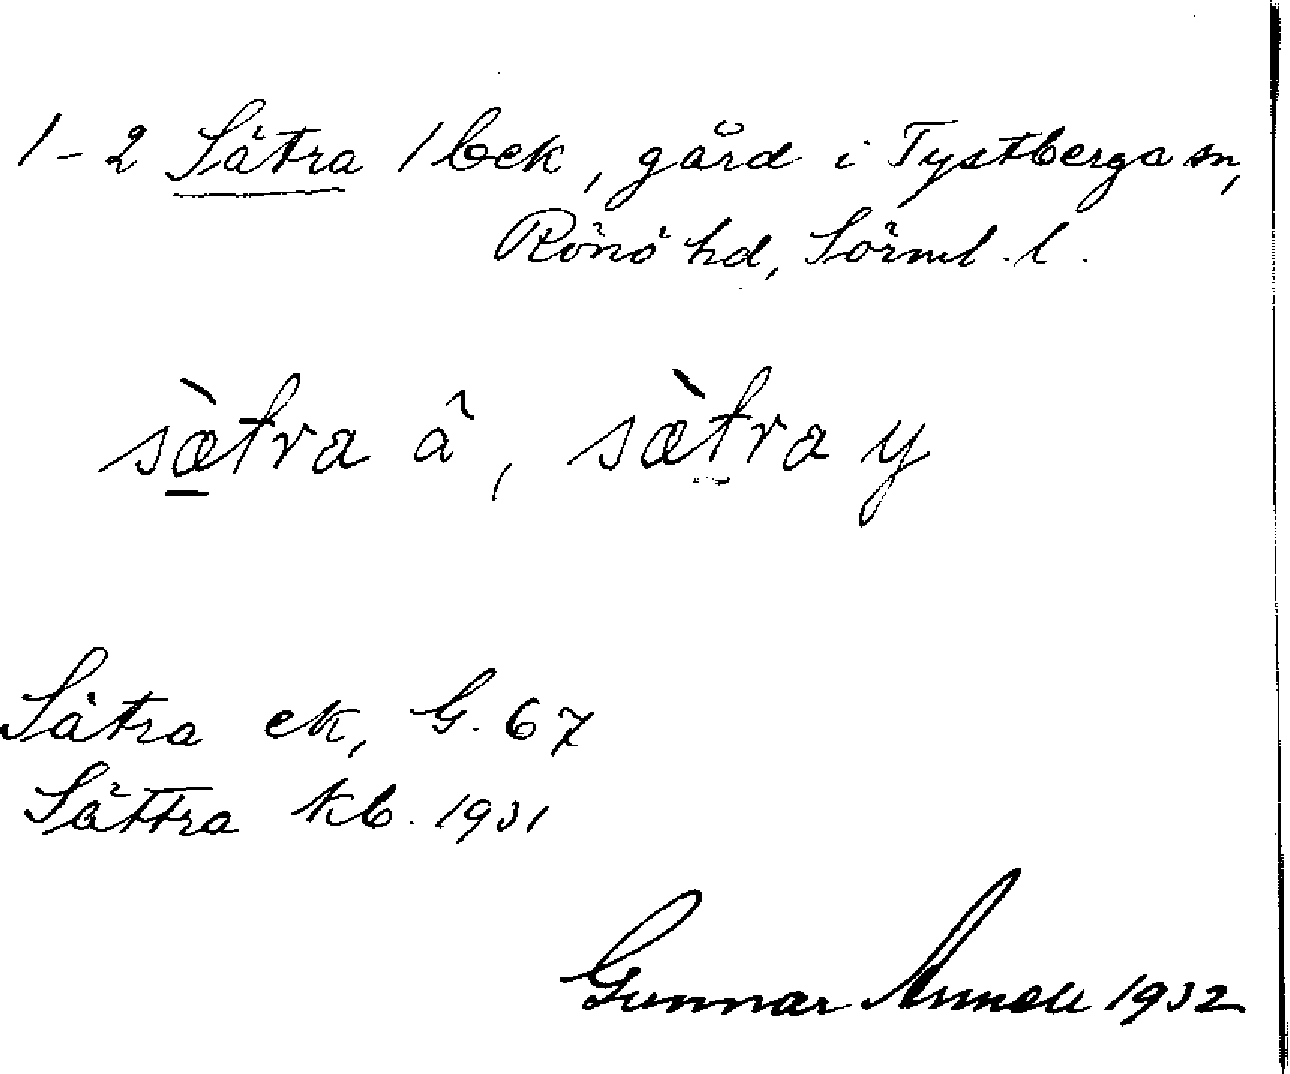 1-2 Sätra 1 bek, gård i Tystberga sn,
Rönö hd, Sörml. l.
sæ̀tra â, sæ̀tra y
Sätra ek, G. 67
Sättra kb. 1931
Gunnar 1932